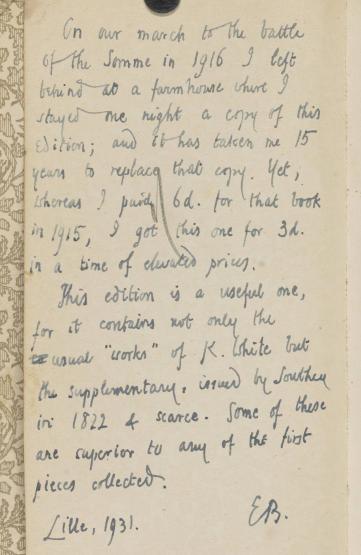 On our march to the battle
of the Somme in 1916 I left
behind at a farmhouse where I
stayed one night a copy of this
Edition; and it has taken me 15
years to replace that copy. Yet,
whereas I paid 6d. for that book
in 1915, I got this one for 3d.
in a time of elevated prices.
This edition is a useful one,
for it contains not only the
usual "works" of K. White but
the supplementary, issued by Southey
in 1822 & scarce. Some of these
are superior to any of the first
pieces collected.
EB.
Lille, 1931.